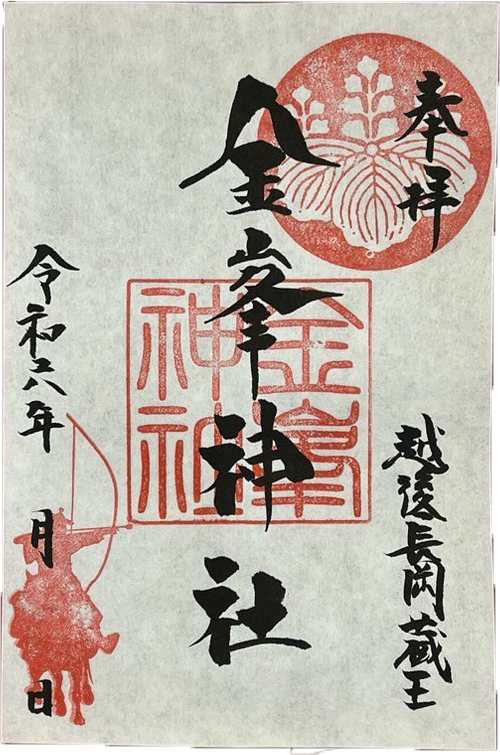 奉拝
越後長岡蔵王
金峯神社
金峯
神社
令和六年 月 日